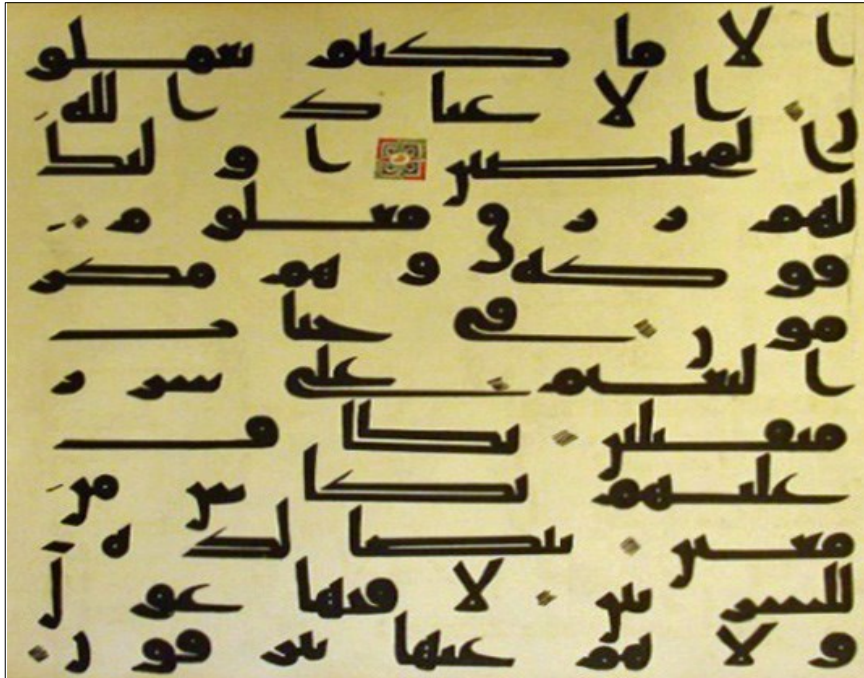 الا ما كنتم تعملو
ن الا عباد الله
المخلصين اولئك
لهم رزق معلوم
فوكه وهم مكر
مون في جنت
النعيم على سرر
متقبلين يطاف
عليهم بكاس من
معين بيضا لذة
للشربين لا فيها غول
ولا هم عنها ينزفون